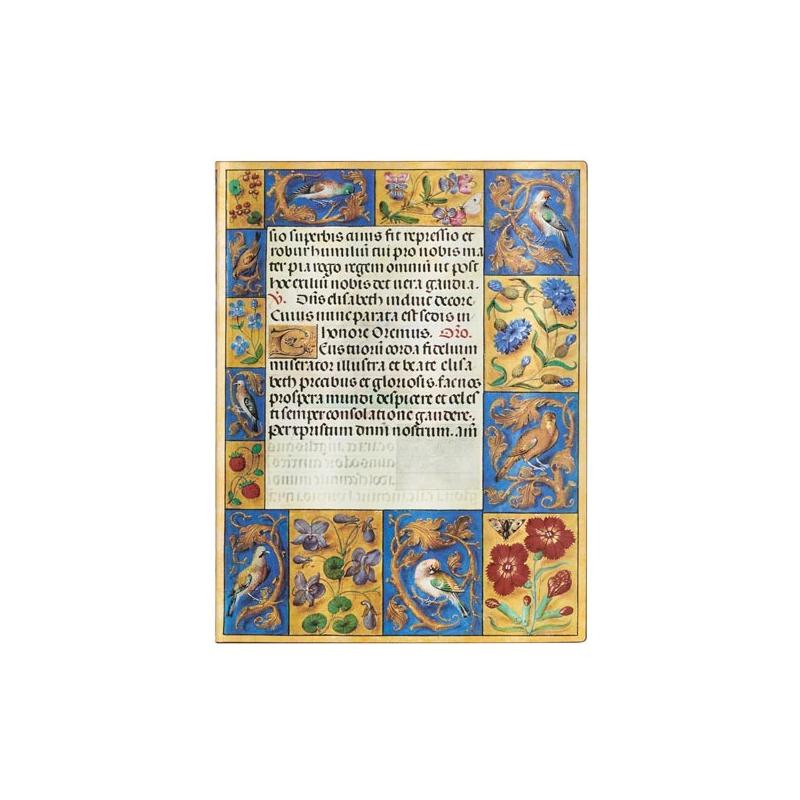 sio superbis cuius fit repressio et
robur humilium tui pro nobis ma
ter pia rogo regem omnium ut post
hoc exilium nobis det uera gaudia.
V. Dns elisabeth induit decore.
Cuius nunc parata est sedis in
honore Oremus. Oro.
Eus tuorum corda fidelium
miserator illustra et beate elisa
beth precibus et gloriosis. fac nos
prospera mundi despicere et celes
ti semper consolatione gaudere.
per xpristum dnm nostrum. am